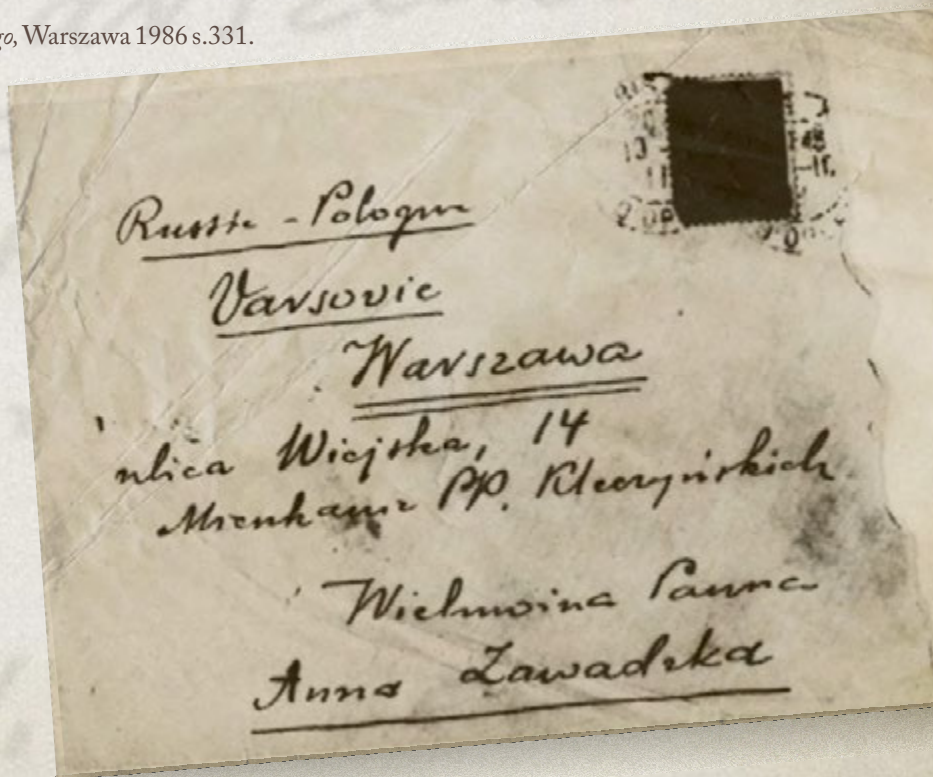 go, Warszawa 1986 s.331.
Russie - Pologne
Varsovie
Warszawa
ulica Wiejska, 14
Mieszkanie PP. Kleczyńskich
Wielmożna Panna
Anna Zawadzka